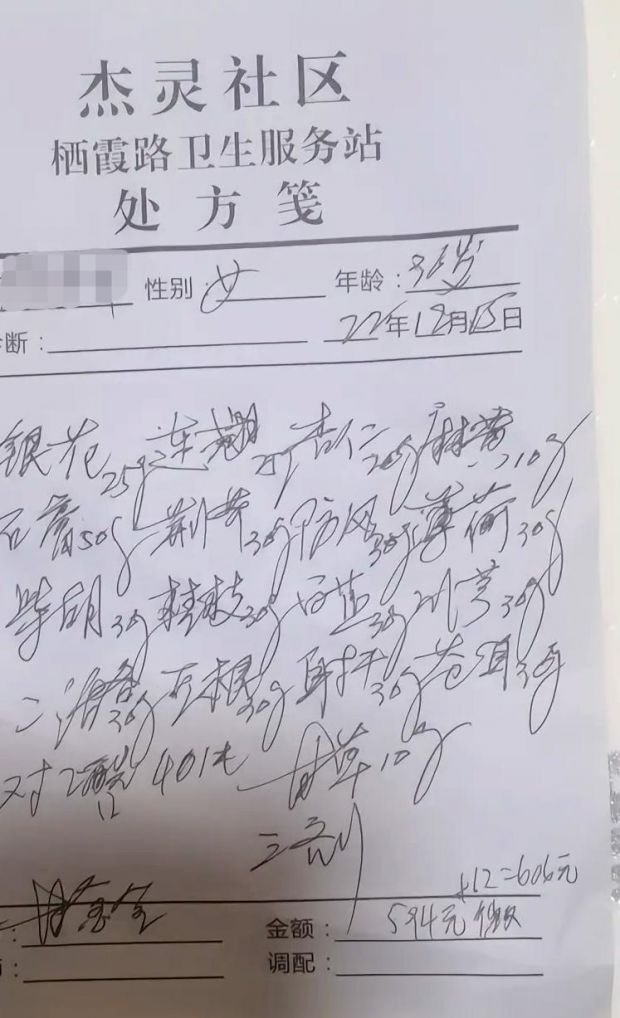 杰灵社区
栖霞路卫生服务站
处方笺
性别：女 年龄：36岁
断： 22年12月15日
银花25g 连翘25g 杏仁20g 麻黄10g
石膏50g 荆芥30g 防风30g 薄荷30g
柴胡30g 桂枝30g 白芷30g 川芎30g
30g 30g 射干30g 苍耳30g
对乙酰 40 甘草10g
三剂
+12=606元
金额：594元
调配：